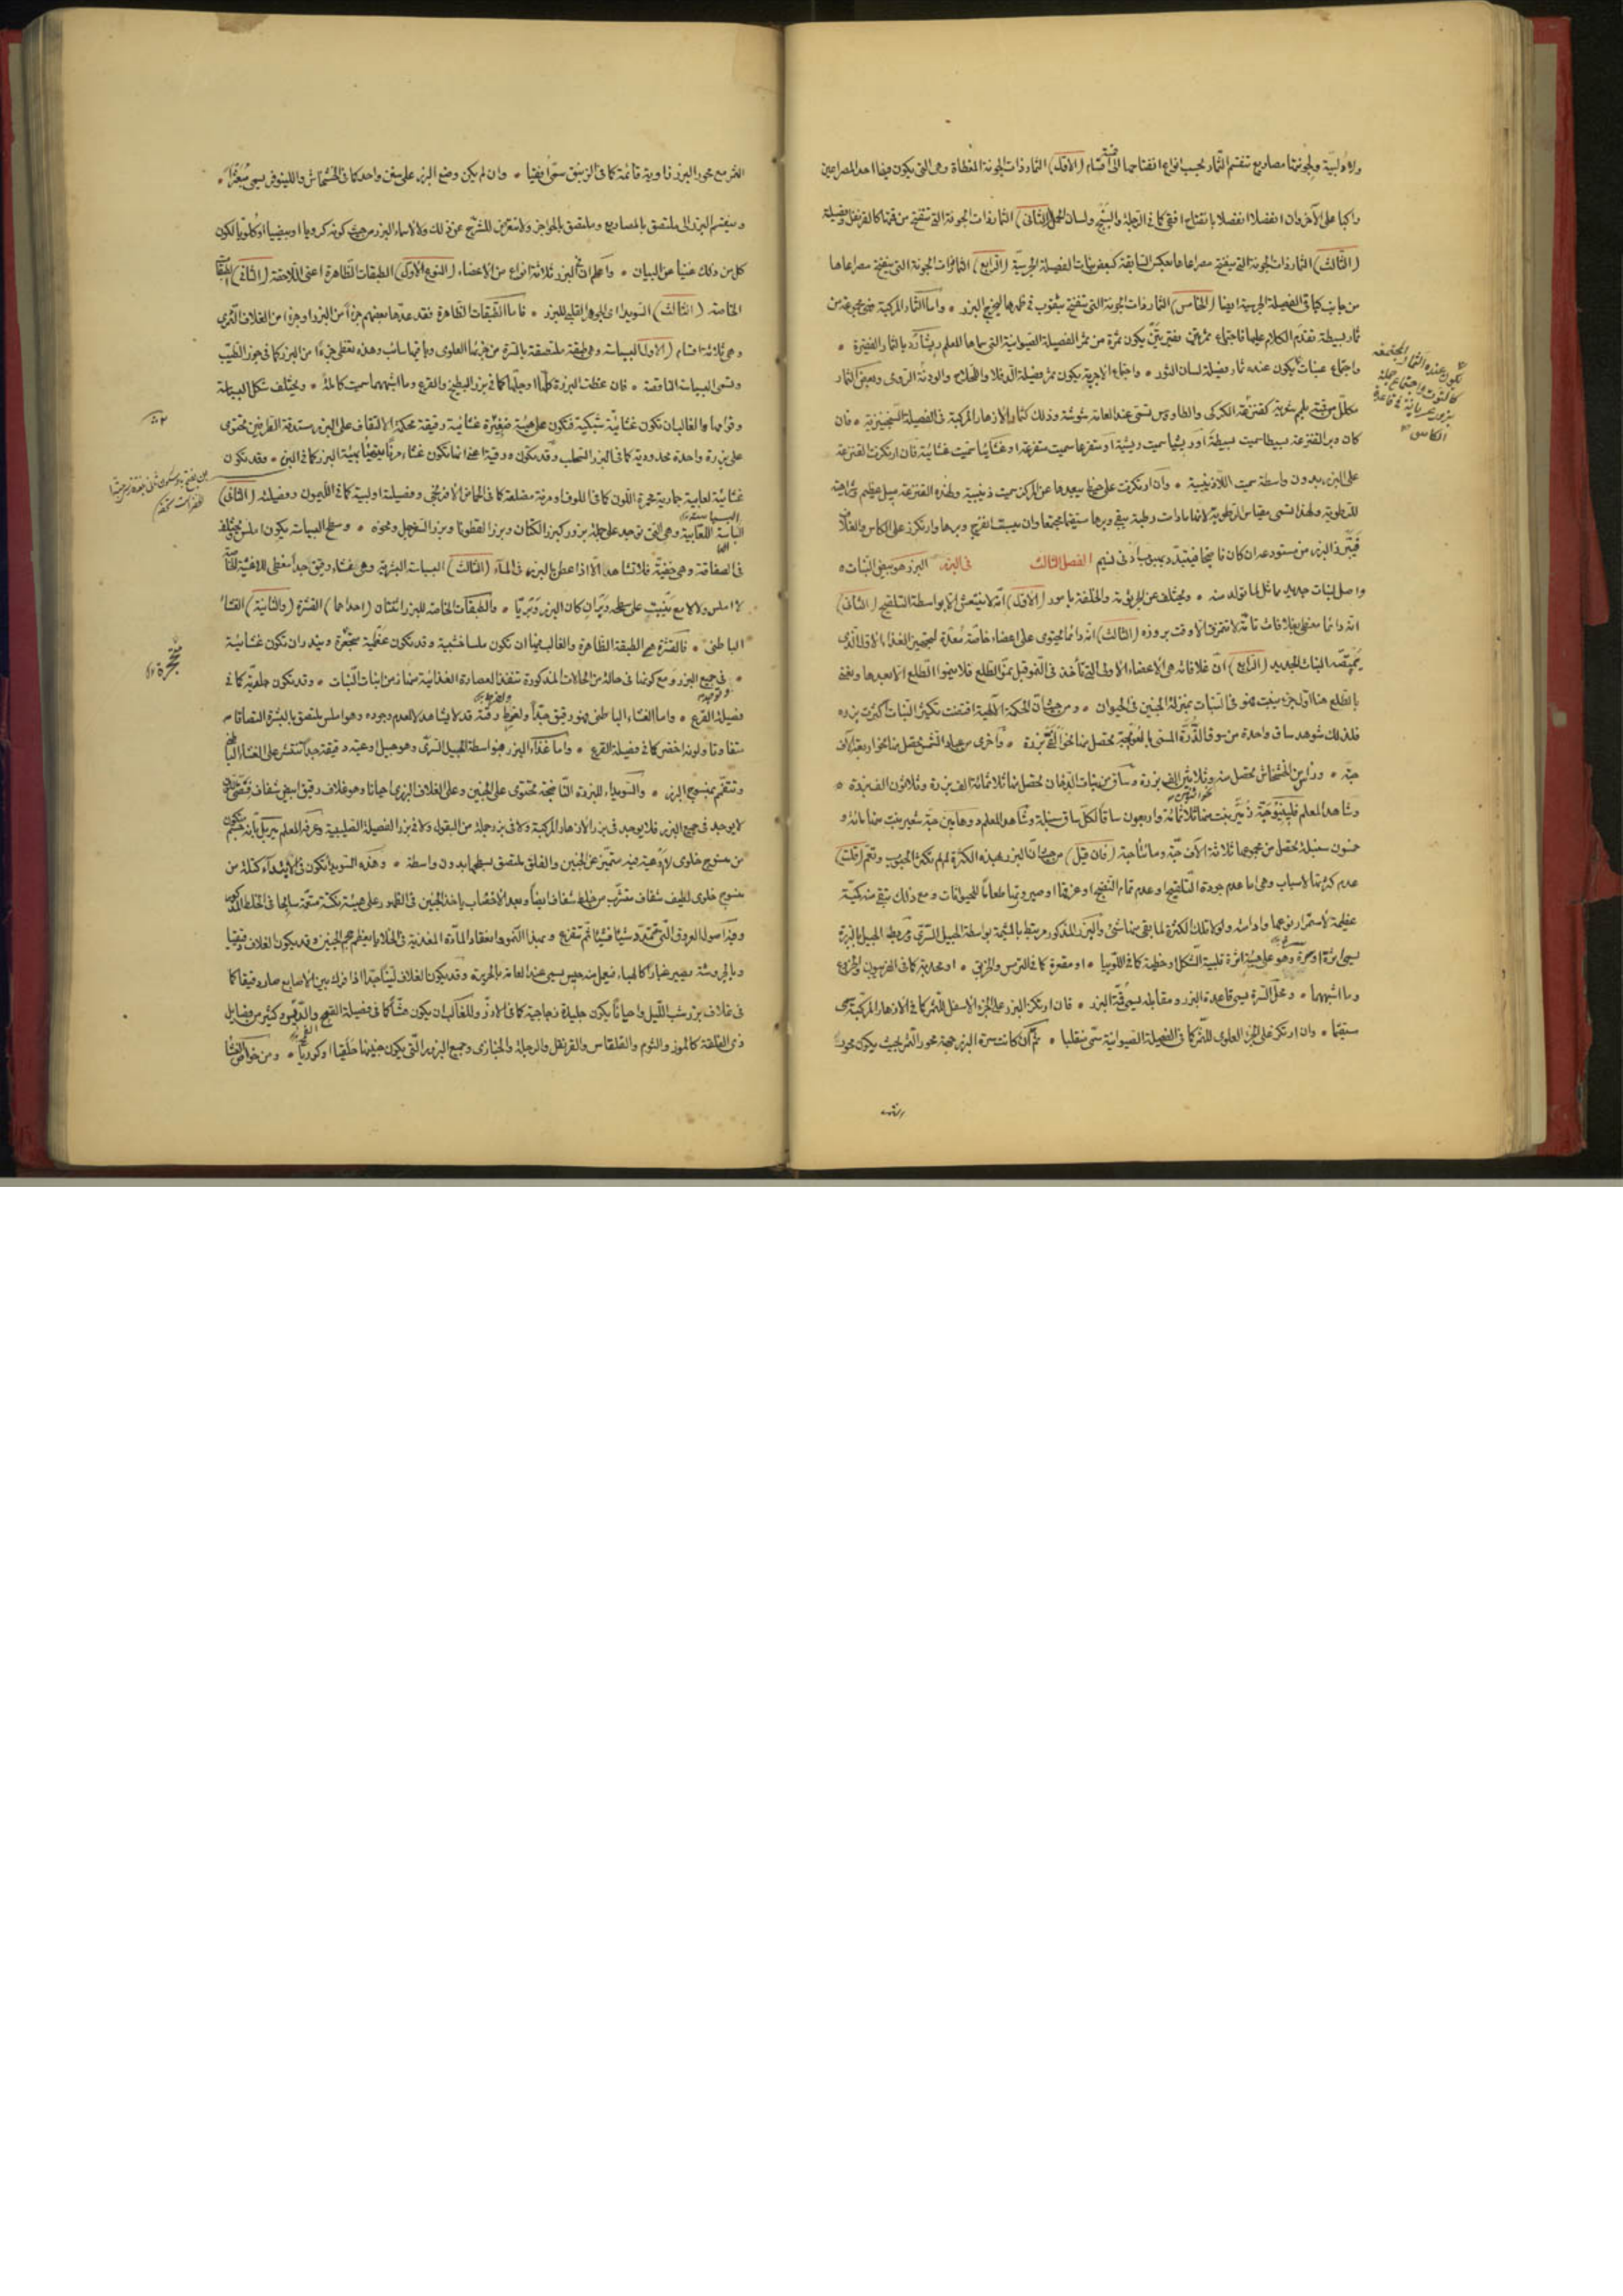 والاولية ولجوفتها مصاريع تنقسم الثمار بحسب انواع انفتاحها الى اقسام (الاول) الثمار ذات الجوفة المغطاة وهى التى يكون فيها احد المصراعين
راكبا على الآخر وان انفصلا انفصلا بانفتاح افقى كما فى الرجلة والبنج ولسان الحمل (الثانى) الثمار ذات الجوفة التى تنفتح من قمتها كالقرنفل وفصيلته
(الثالث) الثمار ذات الجوفة التى ينفتح مصراعاها بعكس السابقة كبعض نباتات الفصيلة الجرسية (الرابع) الثمار ذات الجوفة التى ينفتح مصراعاها
من جانب كما فى الفصيلة الجرسية ايضا (الخامس) الثمار ذات الجوفة التى تنفتح بثقوب فى ظهرها ليخرج البزر ٥ واما الثمار المركبة فهى مجموعة من
ثمار بسيطة تقدم الكلام عليها فاجتماع ثمرتين فقيرتين يكون ثمرة من ثمر الفصيلة الصيوانية التى سماها المعلم ريشارد بالثمار الفقيرة ٥
واجتماع عنبات يكون عنده ثمار فصيلة لسان الثور ٥ واجتماع الاجربة يكون ثمر فصيلة الدفلا والبعض الثمار
مكلل من قمته بلحم غريبة كقنزعة الكركى والطاووس تسمى عند العامة شوشة وذلك كثمار الازهار المركبة فى الفصيلة السنجنيزية ٥ فان
كان وبر القنزعة بسيطا سميت بسيطة او ريشيا سميت ريشية او متفرعا سميت متفرعة او غشائيا سميت غشائية فان ارتكزت القنزعة
على البزر بدون واسطة سميت اللاذنيبية ٥ وان ارتكزت على خيط يبعدها عن المركز سميت ذنيبية ولهذه القنزعة ميل عظيم
للرطوبة ولهذا تسمى مقياس الرطوبة لانها مادامت رطبة يبقى وبرها مستقيما مجتمعا وان يبست انفرج وبرها وارتكز على الكاس والغلاف
فيبرز البزر من مستودعه ان كان ناضجا فيتبدد بهبوب ادنى نسيم الفصل الثالث فى البزر البزر هو بيض النبات ٥
واصل لنبات جديد مماثل لما تولد منه ٥ ويختلف عن الجرثومة والخلفة بامور (الاول) انه لا ينتعش الا بواسطة التلقيح (الثانى)
انه دائما مغطى بغلافات تامة لا تتمزق الا وقت بروزه (الثالث) انه دائما يحتوى على اعضاء خاصة معدة لتجهيز الغذاء الاول الذى
يمتصه النبات الجديد (الرابع) ان غلافاته هى الاعضاء الاولى التى تأخذ فى النمو قبل نمو الطلع فلا ينمو الطلع الا بعدها ونعنى
بالطلع هنا اول جزء ينبت فهو فى النبات بمنزلة الجنين فى الحيوان ٥ ومن حيث ان الحكمة الالهية اقتضت تكثير النبات كثرت بزره
فلذلك شوهد ساق واحدة من سوق الذرة تحصل منها نحو الفى بزرة ٥ واخرى من عباد الشمس تحصل منها نحو اربعة آلاف
حبة ٥ ورأس من الخشخاش تحصل منه وثلاثين الف بزرة وساق من نبات الدخان تحصل منها ثلاثمائة الف بزرة وثلاثون الف بزرة ٥
وشاهد المعلم حبة شعير نبت منها ثلاثمائة واربعون ساقا لكل ساق سنبلة وشاهد المعلم دوهامين حبة شعير نبت منها مائة و
خمسون سنبلة تحصل من مجموعها ثلاثة الآف حبة ومائتا حبة (فان قيل) من حيث ان البزر بهذه الكثرة لم لم تكثر الحبوب وتعم (قلت)
عدم كثرتها لاسباب وهى اما عدم جودة التلقيح او عدم تمام النضج او عرقها او صيرورتها طعاما للحيوانات ومع ذلك يبقى منه كمية
عظيمة لاستمرار نوعها وادامته ولولا تلك الكثرة لما بقى منها شئ والبزر المذكور مرتبط بالمشيمة بواسطة الحبيل السرى ومربط الحبيل بالبزرة
يسمى اثرة او سرة وهو على هيئة اثرة قلبية الشكل او خطية كما فى اللوبيا ٥ او مقعرة كما فى الترمس ٥ او محدبة كما فى
وما اشبههما ٥ ومحل السرة يسمى قاعدة البزر ومقابله يسمى قمة البزر ٥ فان ارتكز البزر على الجزء الاسفل للثمر كما فى الازهار المركبة سمى
مستقيما ٥ وان ارتكز على الجزء العلوى للثمر كما فى الفصيلة الصيوانية سمى منقلبا ٥ ثم ان كانت سرة البزر جهة محور الثمر بحيث يكون محور
الثمر مع محور البزر زاوية قائمة كما فى الزنبق سمى افقيا ٥ وان لم يكن وضع البزر على سنن واحد كما فى الخشخاش والنينوفر يسمى مبعثرا ٥
وينقسم البزر الى ملتصق بالمصاريع وملتصق بالحواجز ولا نتعرض للشرح عن ذلك ولا لاسماء البزر من حيث كونه كرويا او بيضيا او كلويا لكون
كل من ذلك غنيا عن البيان ٥ واعلم ان فى البزر ثلاثة انواع من الاعضاء (النوع الاول) الطبقات الظاهرة اعنى اللاحقة (الثانى) الطبقات
الخاصة (الثالث) السويداء اى الجوهر القلبى للبزر ٥ فاما الطبقات الظاهرة فقد عدها بعضهم جزأ من البزر او جزأ من الغلاف الثمرى
وهى ثلاثة اقسام (الاول) البسباسة وهى طبقة ملتصقة بالسرة من جزئها العلوى وباقيها سائب وهذه تغطى جزءا من البزر كما فى جوز الطيب
وتسمى البسباسة الناقصة ٥ فان غطت البزرة كلها او جلها كما فى بزر البطيخ والقرع وما اشبههما سميت كاملة ٥ ويختلف شكل البسباسة
وقوامها والغالب ان تكون غشائية شبكية فتكون على هيئة ضفيرة غشائية رقيقة محكمة الالتفاف على البزر مستدقة الطرفين تحتوى
على بزرة واحدة محدودبة كما فى البزر السحلب وقد تكون ورقية اعنى انها تكون غشاء مرنا مغطيا بقية البزر كما فى البن ٥ وقد تكون
غشائية لعابية جمارية محمرة اللون كما فى اللوف او مرنة مضلعة كما فى الحماض الافرنجى وفصيلته او لبية كما فى الليمون وفصيلته (الثانى)
البسباسة اللعابية وهى التى توجد على جملة بزور كبزر الكتان وبزر القطونا وبزر السفرجل ونحوه ٥ وسطح البسباسة يكون املس
فى الصفاقة وهى خفية فلا تشاهد الا اذا عطن البزر فى الماء (الثالث) البسباسة البشرية وهى غشاء رقيق جدا مغطى للاغشية الخاصة
لا املس ولا لامع ينبت على سطحه وبر ان كان البزر وبريا ٥ والطبقات الخاصة للبزر اثنتان (احداهما) القشرة (والثانية) الغشاء
الباطنى ٥ فالقشرة هى الطبقة الظاهرة والغالب فيها ان تكون ملسا خشبية وقد تكون عظمية متحجرة ويندر ان تكون غشائية
فى جميع البزر ومع كونها فى حالة من الحالات المذكورة تنفذ العصارة الغذائية منها زمن انبات النبات ٥ وقد تكون جلدية كما فى
فصيلة القرع ٥ واما الغشاء الباطنى فهو رقيق جدا ولفرط رقته قد لا يشاهد لا لعدم وجوده وهو املس ملتصق بالبشرة التصاقا
متفاوتا ولونه اخضر كما فى فصيلة القرع ٥ واما غذاء البزر فبواسطة الحبيل السرى وهو حبيل اوعيته دقيقة جدا تنتشر على الغشاء الباطنى
وتتفمم بمنسوج البزر ٥ والسويداء للبزرة الناضجة تحتوى على الجنين وعلى الغلاف البزرى احيانا وهو غلاف رقيق ابيض شفاف
لا يوجد فى جميع البزر فلا يوجد فى بزر الازهار المركبة ولا فى بزر جملة من البقول ولا فى بزر الفصيلة الصليبية وعرفه المعلم ميربل بانه جسم يتكون
من منسوج خلوى لا وعية فيه متميز عن الجنين والفلق ملتصق بسطحها بدون واسطة ٥ وهذه السويداء تكون فى الابتداء كتلة من
منسوج خلوى لطيف شفاف متشرب من خلط شفاف ايضا وبعد الاخصاب ياخذ الجنين فى الظهور على هيئة نكتة معتمة سابحا فى الخلط المذكور
وفيه اصول العروق التى تتمدد شيئا فشيئا ثم تتفرع وبهذا النمو وانعقاد المادة المغذية فى الخلايا يعظم حجم الجنين وقد يكون الغلاف دقيقيا
وبالجروشة يصير غبارا كالهباء فيعمل منه حبيس يسمى عند العامة بالحريرة وقد يكون الغلاف لينا جدا اذا فرك بين الاصابع صار دقيقا كما
فى غلاف بزر شب الليل واحيانا يكون جليدة زجاجية كما فى الارز والغالب ان يكون هشا كما فى فصيلة القمح وكثير من فصايل
ذى الفلقة كالموز والثوم والقلقاس والقرنفل والرجلة والخبازى وجميع البزر التى يكون جنينها حلقيا او كرويا ٥ ومن خواص الغشاء